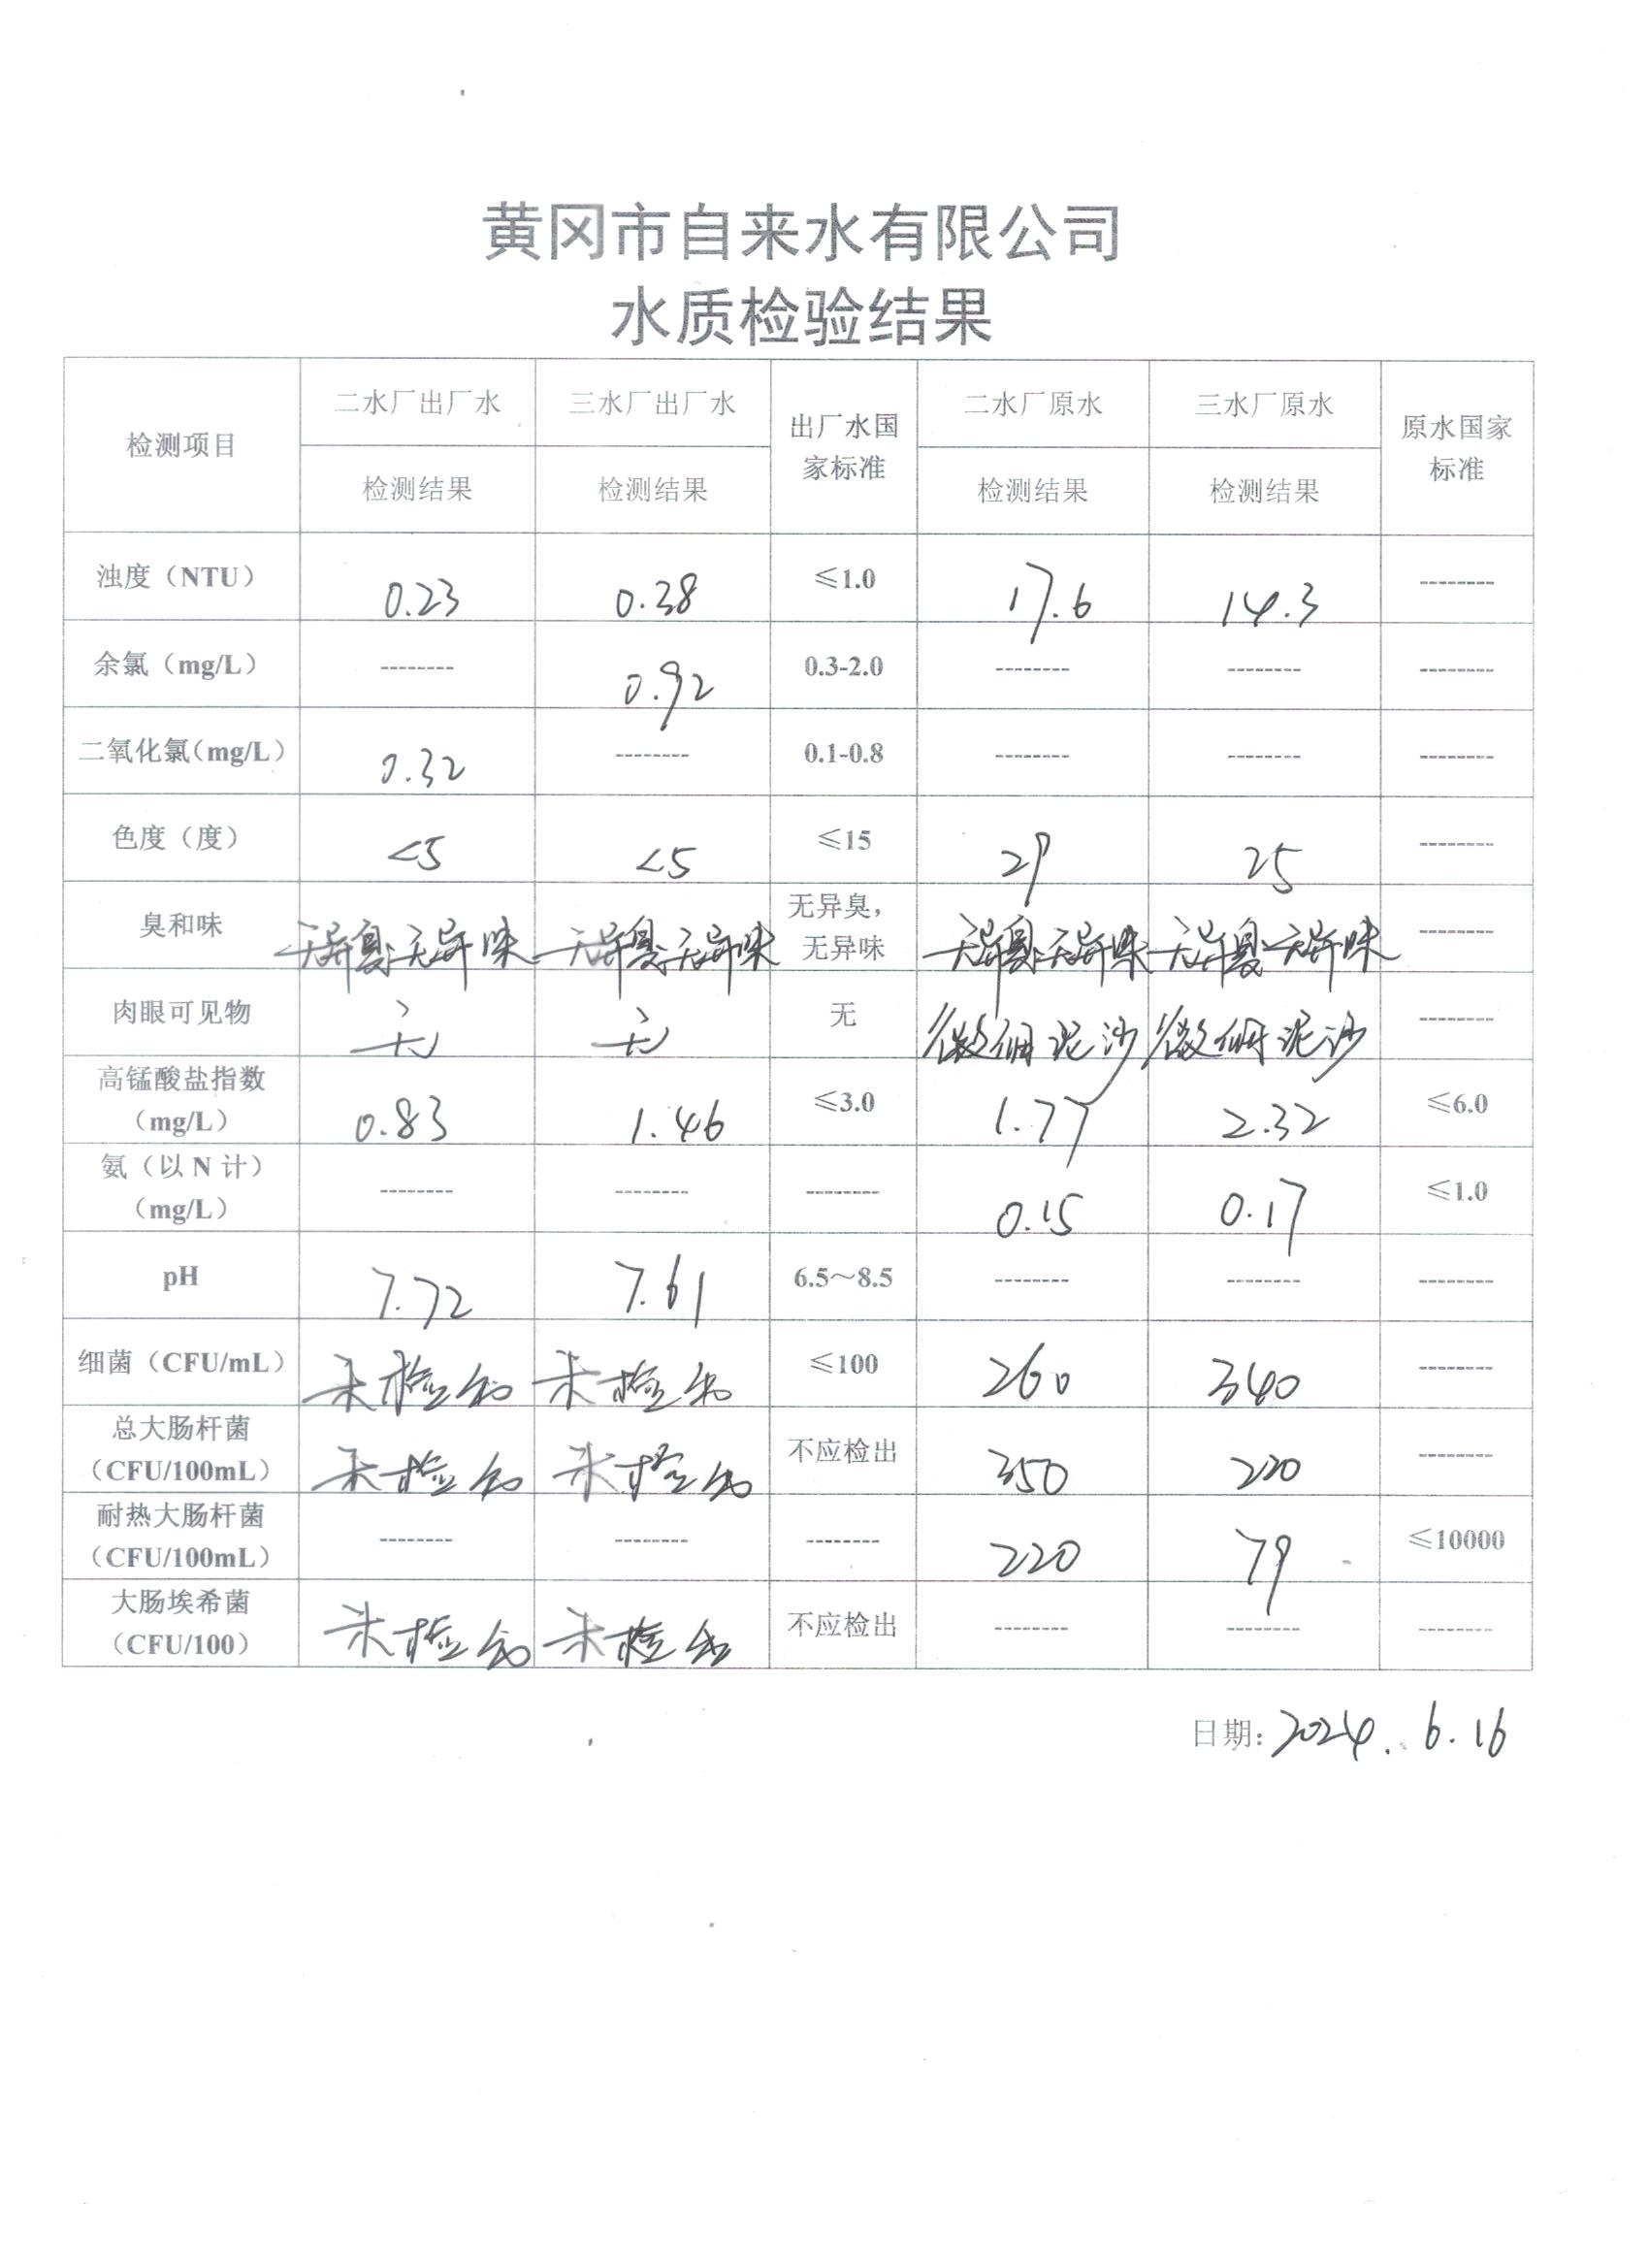 黄冈市自来水有限公司
水质检验结果
检测项目 二水厂出厂水 三水厂出厂水 出厂水国家标准 二水厂原水 三水厂原水 原水国家标准
检测结果 检测结果 检测结果 检测结果
浊度（NTU） 0.23 0.38 ≤1.0 17.6 14.3 --------
余氯（mg/L） -------- 0.92 0.3-2.0 -------- -------- --------
二氧化氯（mg/L） 0.32 -------- 0.1-0.8 -------- -------- --------
色度（度） <5 <5 ≤15 29 25 --------
臭和味 无异臭、无异味 无异臭、无异味 无异臭，无异味 无异臭、无异味 无异臭、无异味 --------
肉眼可见物 无 无 无 微细泥沙 微细泥沙 --------
高锰酸盐指数（mg/L） 0.83 1.46 ≤3.0 1.77 2.32 ≤6.0
氨（以 N 计）（mg/L） -------- -------- -------- 0.15 0.17 ≤1.0
pH 7.72 7.61 6.5～8.5 -------- -------- --------
细菌（CFU/mL） 未检出 未检出 ≤100 260 340 --------
总大肠杆菌（CFU/100mL） 未检出 未检出 不应检出 350 220 --------
耐热大肠杆菌（CFU/100mL） -------- -------- -------- 220 79 ≤10000
大肠埃希菌（CFU/100） 未检出 未检出 不应检出 -------- -------- --------
日期：2024.6.16